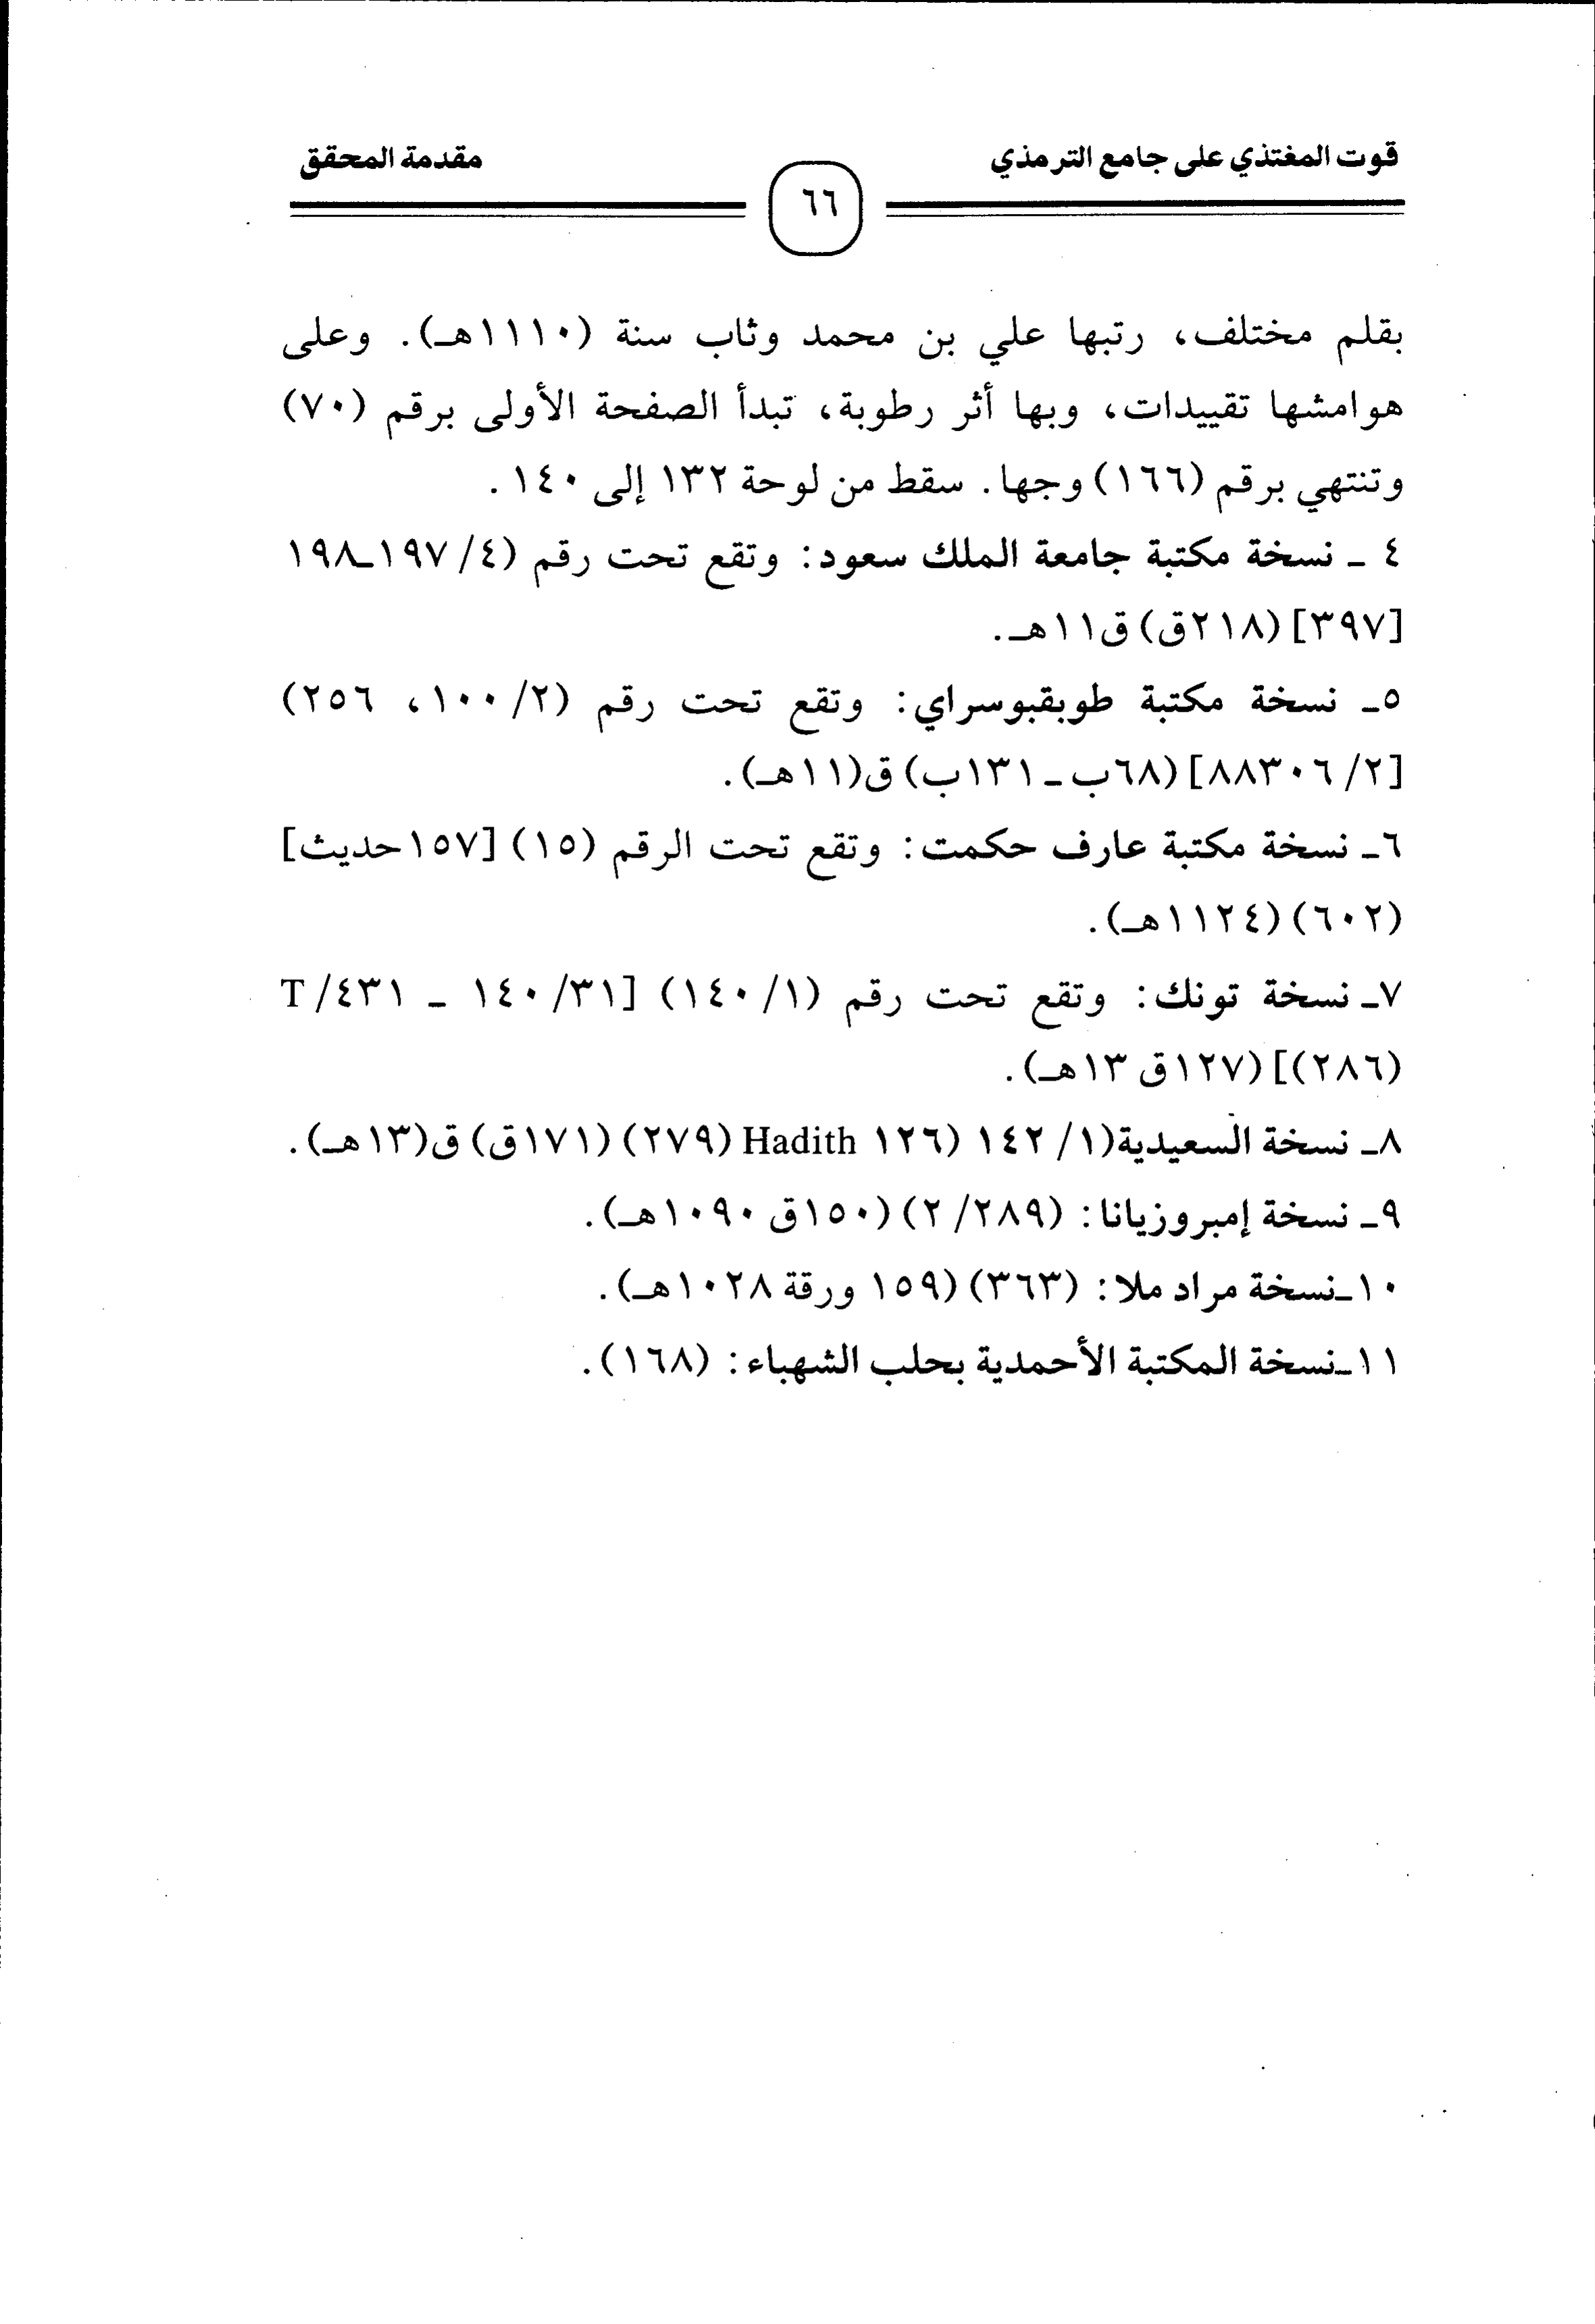 قوت المغتذي على جامع الترمذي
مقدمة المحقق
٦٦
بقلم مختلف، رتبها علي بن محمد وثاب سنة (١١١٠هـ). وعلى
هوامشها تقييدات، وبها أثر رطوبة، تبدأ الصفحة الأولى برقم (٧٠)
وتنتهي برقم (١٦٦) وجها. سقط من لوحة ١٣٢ إلى ١٤٠.
٤ ـ نسخة مكتبة جامعة الملك سعود: وتقع تحت رقم (٤/ ١٩٧ـ١٩٨
[٣٩٧] (٢١٨ق) ق١١هـ.
٥ـ نسخة مكتبة طوبقبوسراي: وتقع تحت رقم (٢/ ١٠٠، ٢٥٦)
[٢/ ٨٨٣٠٦] (٦٨ب ـ ١٣١ب) ق(١١هـ).
٦ـ نسخة مكتبة عارف حكمت: وتقع تحت الرقم (١٥) [١٥٧حديث]
(٦٠٢) (١١٢٤هـ).
٧ـ نسخة تونك: وتقع تحت رقم (١/ ١٤٠) [٣١/ ١٤٠ ـ ٤٣١/ T
(٢٨٦)] (١٢٧ق ١٣هـ).
٨ـ نسخة السعيدية(١/ ١٤٢ (١٢٦ Hadith (٢٧٩) (١٧١ق) ق(١٣هـ).
٩ـ نسخة إمبروزيانا: (٢٨٩/ ٢) (١٥٠ق ١٠٩٠هـ).
١٠ـنسخة مراد ملا: (٣٦٣) (١٥٩ ورقة ١٠٢٨هـ).
١١ـنسخة المكتبة الأحمدية بحلب الشهباء: (١٦٨).